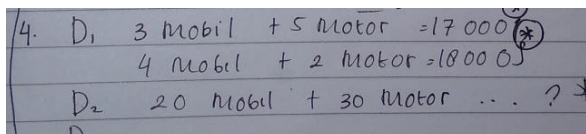 14. D1 3 Mobil + 5 Motor = 17 000 *
4 Mobil + 2 Motor = 18 000
D2 20 Mobil + 30 Motor ... ?